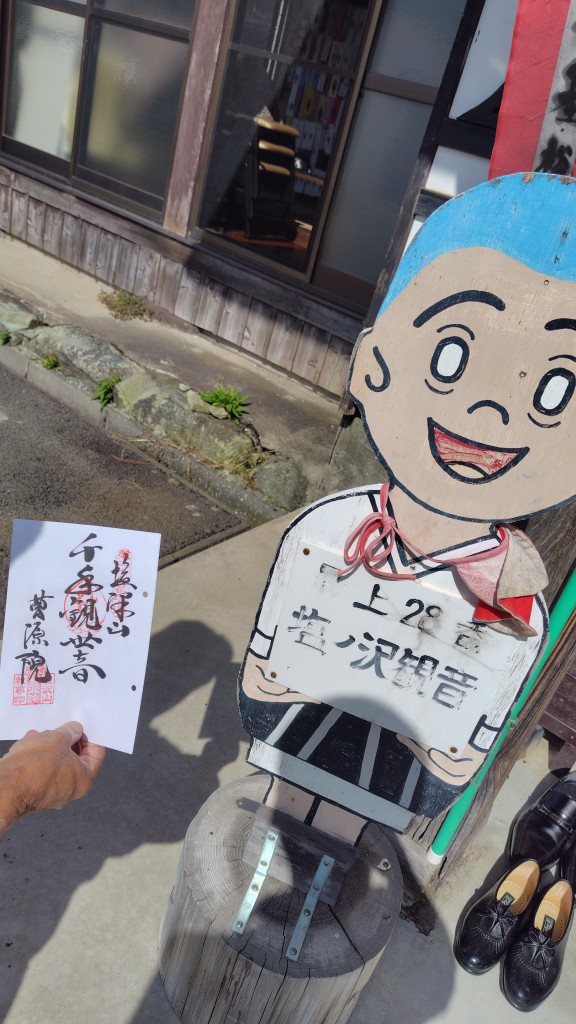 塩澤山
千手観世音
曹源院
上28番
塩ノ沢観音